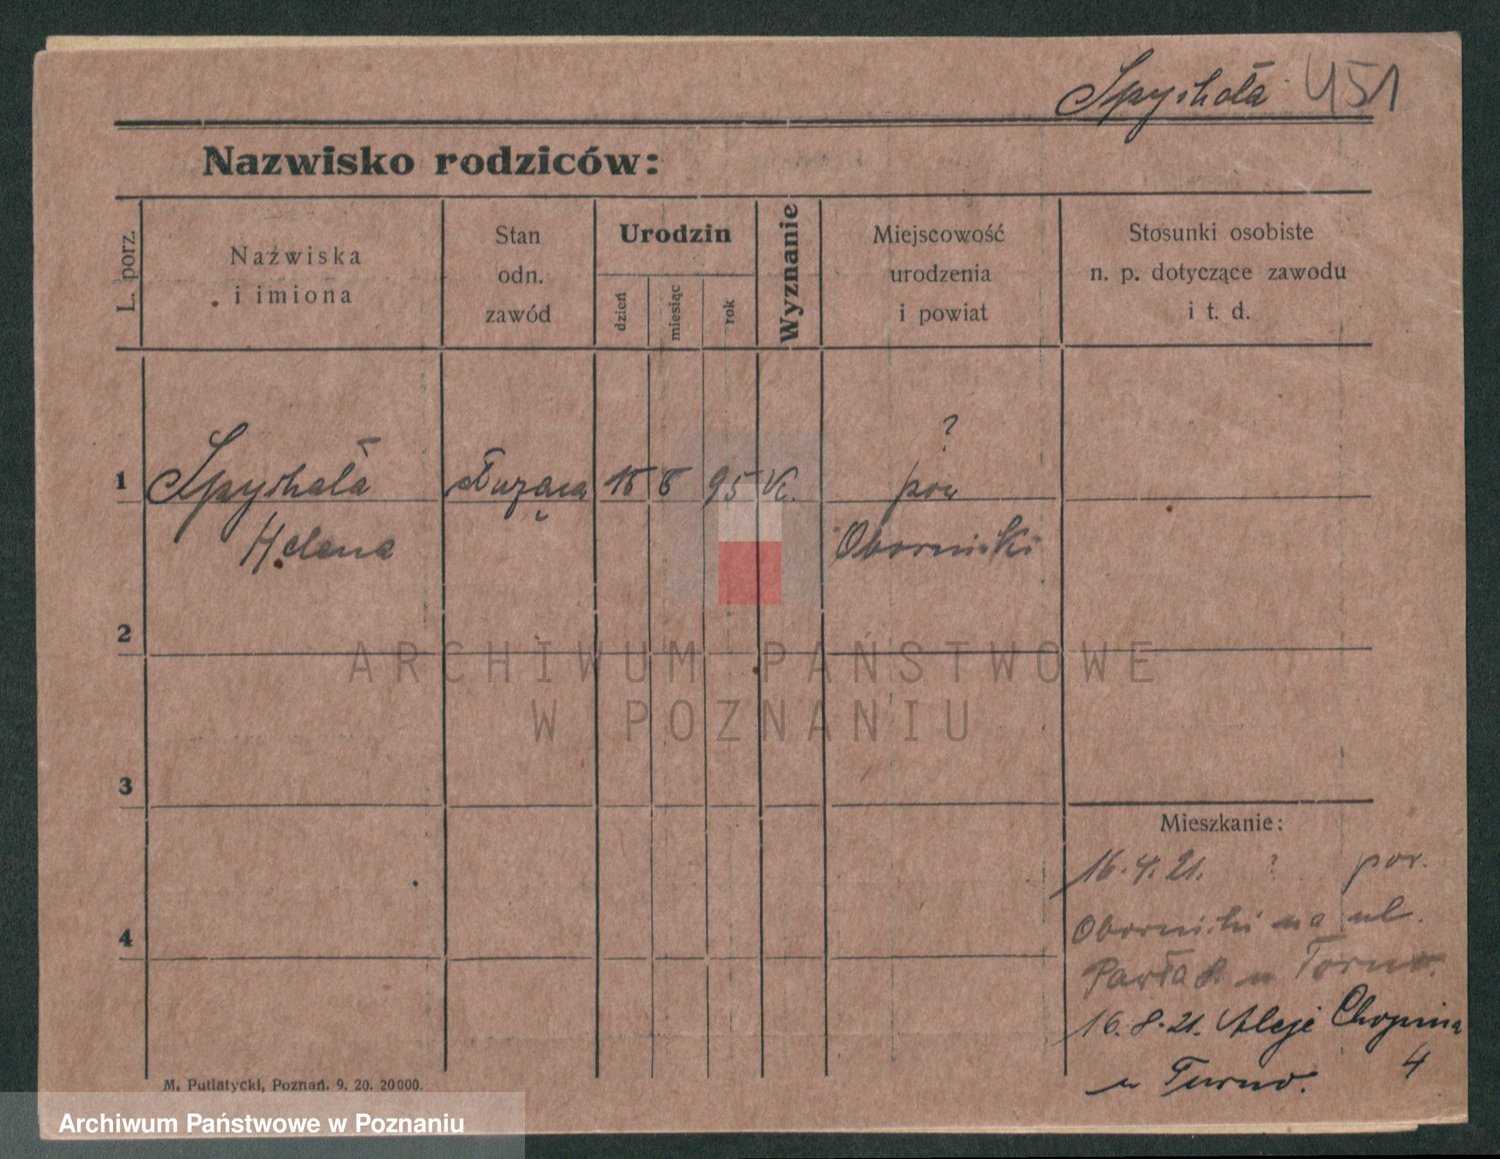 Spychała 451
Nazwisko rodziców:
L. porz.
Nazwiska
i imiona
Stan
odn.
zawód
Urodzin
dzień
miesiąc
rok
Wyznanie
Miejscowość
urodzenia
i powiat
Stosunki osobiste
n. p. dotyczące zawodu
i t. d.
?
1 Spychała służąca 95 K. pow
Helena Oborniki
2
3
4
ARCHIWUM PAŃSTWOWE
W POZNANIU
Mieszkanie:
16.4.21. ? pow.
Oborniki na ul.
16.8.21. Aleje Chopina
4
u Turno.
M. Putiatycki, Poznań. 9. 20. 20000.
Archiwum Państwowe w Poznaniu